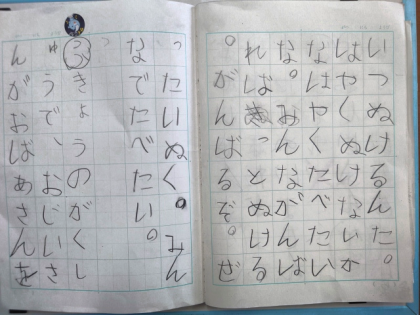 いつぬけるんた。
はやくぬけないか
なはやくたべたい
な。みんながんば
ればきっとぬける
。がんばるぞ。ぜ
ったいぬく。みん
なでたべたい。
きょうのがくし
ゅうは、おじいさ
んがおばあさんを